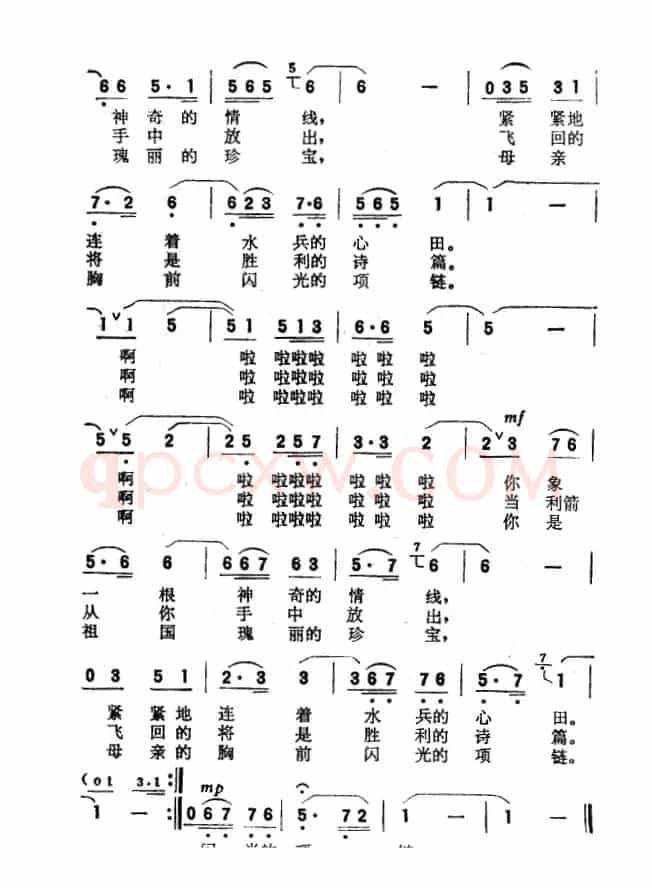 6 6 5· 1 | 5 6 5 5 6 | 6 — | 0 3 5 3 1
神 奇 的 情 线， 紧 紧地
手 中 放 出， 飞 回的
瑰 丽 的 珍 宝， 母 亲
7· 2 6 | 6 2 3 7·6 | 5 6 5 1 | 1 —
连 着 水 兵的 心 田。
将 是 胜 利的 诗 篇。
胸 前 闪 光的 项 链。
1 ∨ 1 5 | 5 1 5 1 3 | 6·6 5 | 5 —
啊 啦 啦啦啦 啦 啦 啦
啊 啦 啦啦啦 啦 啦 啦
啊 啦 啦啦啦 啦 啦 啦
mf
5 ∨ 5 2 | 2 5 2 5 7 | 3·3 2 | 2 ∨ 3 7 6
啊 啦 啦啦啦 啦 啦 啦 你 象
啊 啦 啦啦啦 啦 啦 啦 当 利箭
啊 啦 啦啦啦 啦 啦 啦 你 是
qpcxw.COM
5· 6 6 | 6 6 7 6 3 | 5· 7 7 6 | 6 —
一 根 神 奇的 情 线，
从 你 手 中 放 出，
祖 国 瑰 丽的 珍 宝，
0 3 5 1 | 2· 3 3 | 3 6 7 7 6 | 5· 7 7 1
紧 紧 地 连 着 水 兵的 心 田。
飞 回 的 将 是 胜 利的 诗 篇。
母 亲 的 胸 前 闪 光的 项 链。
(0 1 3·1 :‖ mp
1 — :‖ 0 6 7 7 6 | 5· 7 2 | 1 — | 1 — ‖